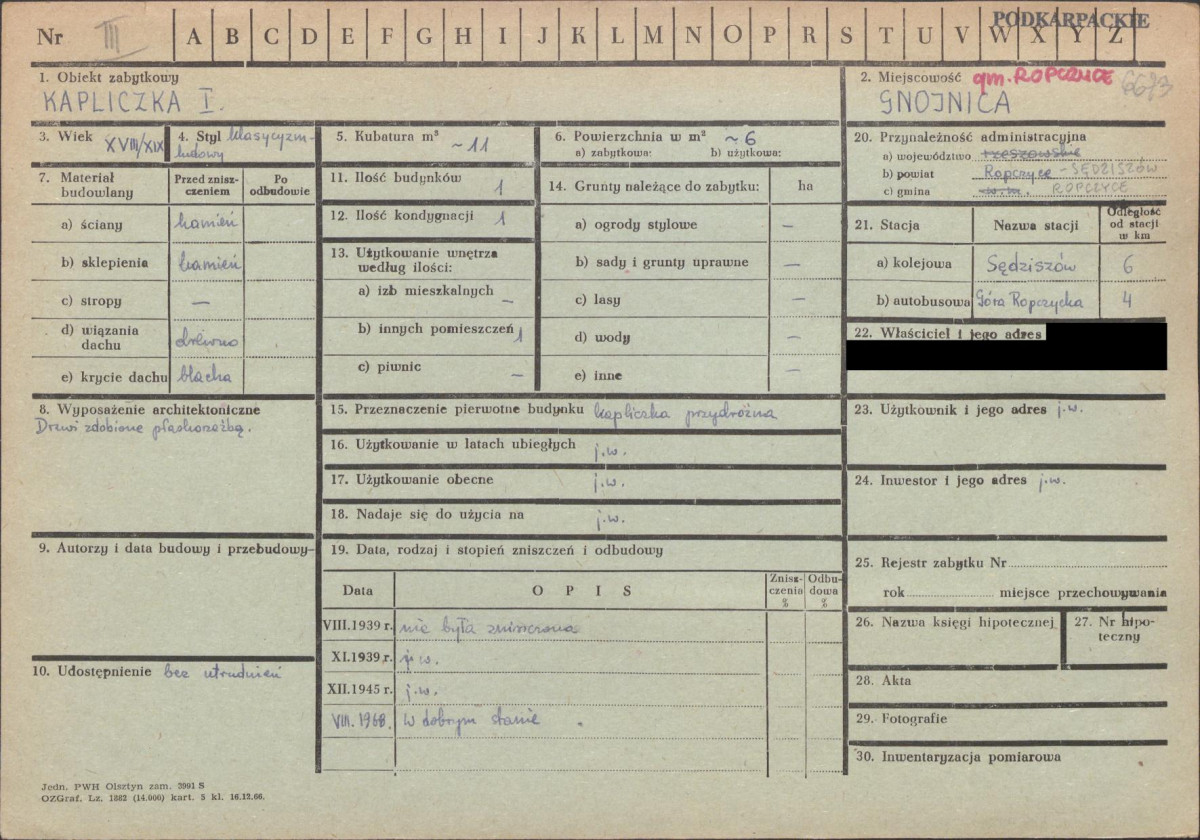 PODKARPACKIE
Nr III A B C D E F G H I J K L M N O P R S T U V W X Y Z
1. Obiekt zabytkowy
KAPLICZKA I.
2. Miejscowość gm. ROPCZYCE
GNOJNICA
3. Wiek XVIII/XIX
4. Styl klasycyzm-
ludowy
5. Kubatura m³ ~11
6. Powierzchnia w m² ~6
a) zabytkowa: b) użytkowa:
7. Materiał budowlany
Przed znisz-
czeniem
Po
odbudowie
a) ściany kamień
b) sklepienia kamień
c) stropy —
d) wiązania
dachu drewno
e) krycie dachu blacha
8. Wyposażenie architektoniczne
Drzwi zdobione płaskorzeźbą.
9. Autorzy i data budowy i przebudowy—
10. Udostępnienie bez utrudnień
11. Ilość budynków 1
12. Ilość kondygnacji 1
13. Użytkowanie wnętrza
według ilości:
a) izb mieszkalnych —
b) innych pomieszczeń 1
c) piwnic —
14. Grunty należące do zabytku: ha
a) ogrody stylowe —
b) sady i grunty uprawne —
c) lasy —
d) wody —
e) inne —
15. Przeznaczenie pierwotne budynku kapliczka przydrożna
16. Użytkowanie w latach ubiegłych j.w.
17. Użytkowanie obecne j.w.
18. Nadaje się do użycia na j.w.
19. Data, rodzaj i stopień zniszczeń i odbudowy
Data OPIS
Znisz-
czenia
%
Odbu-
dowa
%
VIII.1939 r. nie była zniszczona
XI.1939 r. j.w.
XII.1945 r. j.w.
VIII.1968. W dobrym stanie.
20. Przynależność administracyjna
a) województwo rzeszowskie
b) powiat Ropczyce - SĘDZISZÓW
c) gmina w.m. ROPCZYCE
21. Stacja Nazwa stacji
Odległość
od stacji
w km
a) kolejowa Sędziszów 6
b) autobusowa Góra Ropczycka 4
22. Właściciel i jego adres
23. Użytkownik i jego adres j.w.
24. Inwestor i jego adres j.w.
25. Rejestr zabytku Nr
rok miejsce przechowywania
26. Nazwa księgi hipotecznej
27. Nr hipo-
teczny
28. Akta
29. Fotografie
30. Inwentaryzacja pomiarowa
Jedn. PWH Olsztyn zam. 3991 S
OZGraf. Lz. 1882 (14.000) kart. 5 kl. 16.12.66.